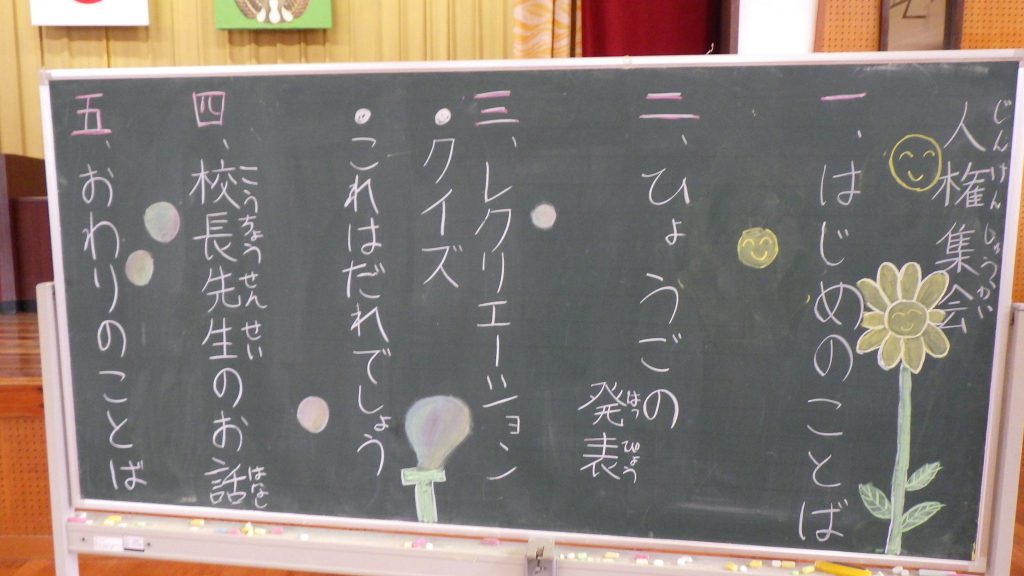 人権集会
じんけんしゅうかい
一、はじめのことば
二、ひょうごの
発表
はっぴょう
三、レクリエーション
・クイズ
・これはだれでしょう
四、校長先生のお話
こうちょうせんせい
はなし
五、おわりのことば